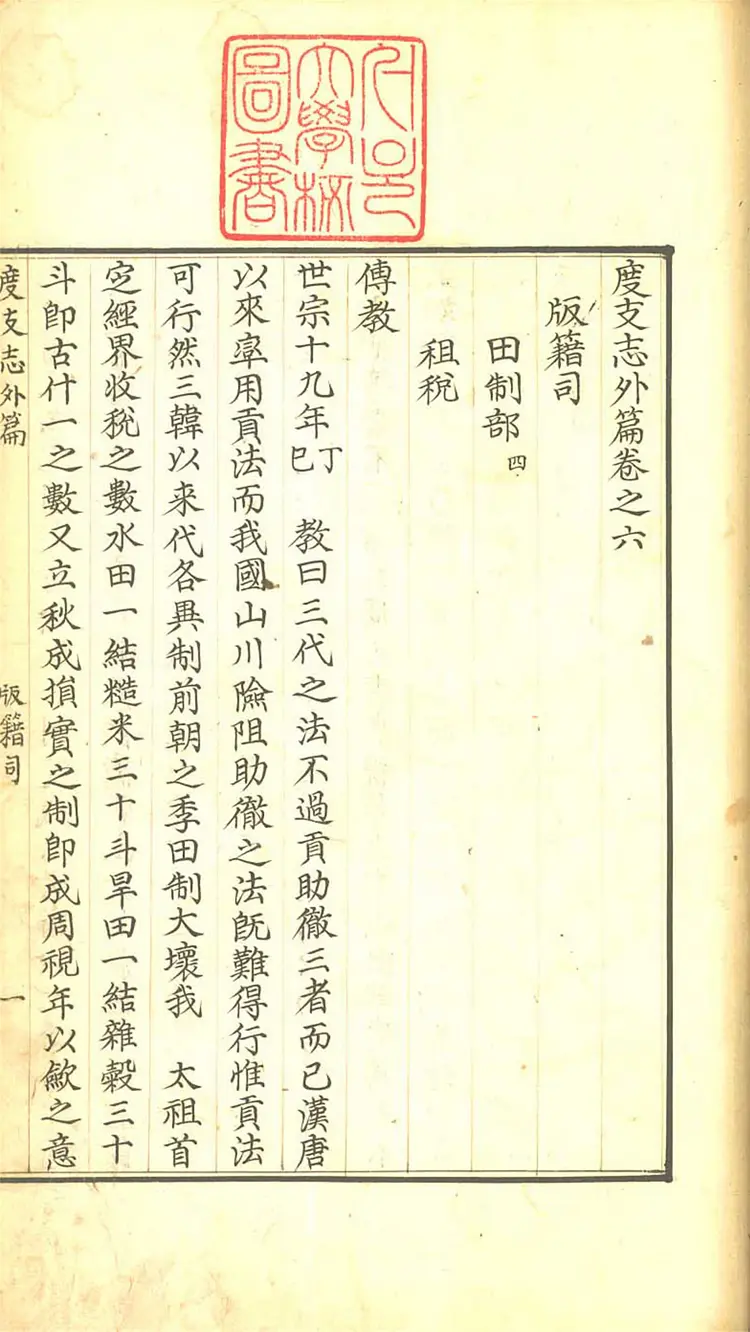 서울
大學校
圖書
度支志外篇卷之六
版籍司
田制部 四
租稅
傳教
世宗十九年丁巳 教曰三代之法不過貢助徹三者而已漢唐
以來率用貢法而我國山川險阻助徹之法旣難得行惟貢法
可行然三韓以来代各異制前朝之季田制大壞我 太祖首
定經界收稅之數水田一結糙米三十斗旱田一結雜穀三十
斗卽古什一之數又立秋成損實之制卽成周視年以歛之意
度支志外篇 版籍司 一